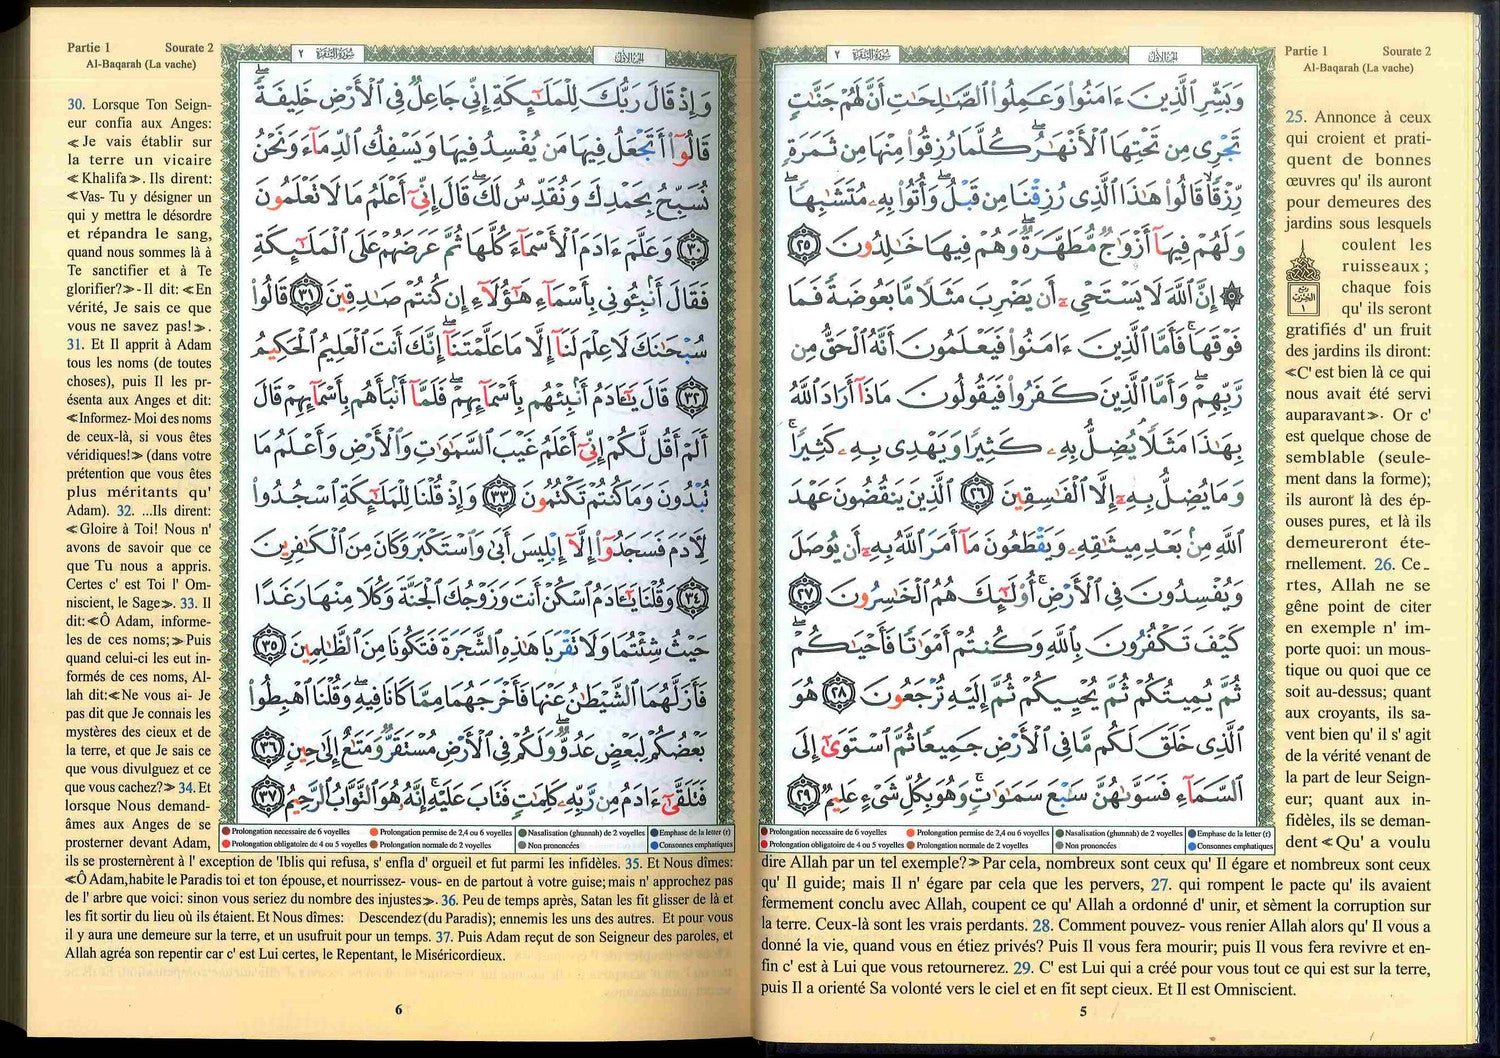 Partie 1 Sourate 2
Al-Baqarah (La vache)
٢ سورة البقرة الجزء الأول
وَبَشِّرِ الَّذِينَ ءَامَنُوا وَعَمِلُوا الصَّالِحَاتِ أَنَّ لَهُمْ جَنَّاتٍ
تَجْرِى مِن تَحْتِهَا الْأَنْهَارُ كُلَّمَا رُزِقُوا مِنْهَا مِن ثَمَرَةٍ
رِّزْقًا قَالُوا هَاذَا الَّذِى رُزِقْنَا مِن قَبْلُ وَأُتُوا بِهِ مُتَشَابِهًا
وَلَهُمْ فِيهَا أَزْوَاجٌ مُّطَهَّرَةٌ وَهُمْ فِيهَا خَالِدُونَ ٢٥
۞ إِنَّ اللَّهَ لَا يَسْتَحْىِ أَن يَضْرِبَ مَثَلًا مَّا بَعُوضَةً فَمَا
فَوْقَهَا فَأَمَّا الَّذِينَ ءَامَنُوا فَيَعْلَمُونَ أَنَّهُ الْحَقُّ مِن
رَّبِّهِمْ وَأَمَّا الَّذِينَ كَفَرُوا فَيَقُولُونَ مَاذَا أَرَادَ اللَّهُ
بِهَاذَا مَثَلًا يُضِلُّ بِهِ كَثِيرًا وَيَهْدِى بِهِ كَثِيرًا
وَمَا يُضِلُّ بِهِ إِلَّا الْفَاسِقِينَ ٢٦ الَّذِينَ يَنقُضُونَ عَهْدَ
اللَّهِ مِن بَعْدِ مِيثَاقِهِ وَيَقْطَعُونَ مَا أَمَرَ اللَّهُ بِهِ أَن يُوصَلَ
وَيُفْسِدُونَ فِى الْأَرْضِ أُولَائِكَ هُمُ الْخَاسِرُونَ ٢٧
كَيْفَ تَكْفُرُونَ بِاللَّهِ وَكُنتُمْ أَمْوَاتًا فَأَحْيَاكُمْ
ثُمَّ يُمِيتُكُمْ ثُمَّ يُحْيِيكُمْ ثُمَّ إِلَيْهِ تُرْجَعُونَ ٢٨ هُوَ
الَّذِى خَلَقَ لَكُم مَّا فِى الْأَرْضِ جَمِيعًا ثُمَّ اسْتَوَى إِلَى
السَّمَاءِ فَسَوَّاهُنَّ سَبْعَ سَمَاوَاتٍ وَهُوَ بِكُلِّ شَىْءٍ عَلِيمٌ ٢٩
Prolongation necessaire de 6 voyelles Prolongation permise de 2,4 ou 6 voyelles Nasalisation (ghunnah) de 2 voyelles Emphase de la lettre (r)
Prolongation obligatoire de 4 ou 5 voyelles Prolongation normale de 2 voyelles Non prononcées Consonnes emphatiques
25. Annonce à ceux
qui croient et prati-
quent de bonnes
œuvres qu' ils auront
pour demeures des
jardins sous lesquels
coulent les
ruisseaux ;
chaque fois
qu' ils seront
gratifiés d' un fruit
des jardins ils diront:
≪C' est bien là ce qui
nous avait été servi
auparavant≫. Or c'
est quelque chose de
semblable (seule-
ment dans la forme);
ils auront là des ép-
ouses pures, et là ils
demeureront éte-
rnellement. 26. Ce-
rtes, Allah ne se
gêne point de citer
en exemple n' im-
porte quoi: un mous-
tique ou quoi que ce
soit au-dessus; quant
aux croyants, ils sa-
vent bien qu' il s' agit
de la vérité venant de
la part de leur Seign-
eur; quant aux in-
fidèles, ils se deman-
dent ≪Qu' a voulu
dire Allah par un tel exemple?≫ Par cela, nombreux sont ceux qu' Il égare et nombreux sont ceux
qu' Il guide; mais Il n' égare par cela que les pervers, 27. qui rompent le pacte qu' ils avaient
fermement conclu avec Allah, coupent ce qu' Allah a ordonné d' unir, et sèment la corruption sur
la terre. Ceux-là sont les vrais perdants. 28. Comment pouvez- vous renier Allah alors qu' Il vous a
donné la vie, quand vous en étiez privés? Puis Il vous fera mourir; puis Il vous fera revivre et en-
fin c' est à Lui que vous retournerez. 29. C' est Lui qui a créé pour vous tout ce qui est sur la terre,
puis Il a orienté Sa volonté vers le ciel et en fit sept cieux. Et Il est Omniscient.
5
Partie 1 Sourate 2
Al-Baqarah (La vache)
٢ سورة البقرة الجزء الأول
وَإِذْ قَالَ رَبُّكَ لِلْمَلَائِكَةِ إِنِّى جَاعِلٌ فِى الْأَرْضِ خَلِيفَةً
قَالُوا أَتَجْعَلُ فِيهَا مَن يُفْسِدُ فِيهَا وَيَسْفِكُ الدِّمَاءَ وَنَحْنُ
نُسَبِّحُ بِحَمْدِكَ وَنُقَدِّسُ لَكَ قَالَ إِنِّى أَعْلَمُ مَا لَا تَعْلَمُونَ
٣٠ وَعَلَّمَ ءَادَمَ الْأَسْمَاءَ كُلَّهَا ثُمَّ عَرَضَهُمْ عَلَى الْمَلَائِكَةِ
فَقَالَ أَنبِئُونِى بِأَسْمَاءِ هَاؤُلَاءِ إِن كُنتُمْ صَادِقِينَ ٣١ قَالُوا
سُبْحَانَكَ لَا عِلْمَ لَنَا إِلَّا مَا عَلَّمْتَنَا إِنَّكَ أَنتَ الْعَلِيمُ الْحَكِيمُ
٣٢ قَالَ يَاءَادَمُ أَنبِئْهُم بِأَسْمَائِهِمْ فَلَمَّا أَنبَأَهُم بِأَسْمَائِهِمْ قَالَ
أَلَمْ أَقُل لَّكُمْ إِنِّى أَعْلَمُ غَيْبَ السَّمَاوَاتِ وَالْأَرْضِ وَأَعْلَمُ مَا
تُبْدُونَ وَمَا كُنتُمْ تَكْتُمُونَ ٣٣ وَإِذْ قُلْنَا لِلْمَلَائِكَةِ اسْجُدُوا
لِآدَمَ فَسَجَدُوا إِلَّا إِبْلِيسَ أَبَى وَاسْتَكْبَرَ وَكَانَ مِنَ الْكَافِرِينَ
٣٤ وَقُلْنَا يَاءَادَمُ اسْكُنْ أَنتَ وَزَوْجُكَ الْجَنَّةَ وَكُلَا مِنْهَا رَغَدًا
حَيْثُ شِئْتُمَا وَلَا تَقْرَبَا هَاذِهِ الشَّجَرَةَ فَتَكُونَا مِنَ الظَّالِمِينَ ٣٥
فَأَزَلَّهُمَا الشَّيْطَانُ عَنْهَا فَأَخْرَجَهُمَا مِمَّا كَانَا فِيهِ وَقُلْنَا اهْبِطُوا
بَعْضُكُمْ لِبَعْضٍ عَدُوٌّ وَلَكُمْ فِى الْأَرْضِ مُسْتَقَرٌّ وَمَتَاعٌ إِلَى حِينٍ ٣٦
فَتَلَقَّى ءَادَمُ مِن رَّبِّهِ كَلِمَاتٍ فَتَابَ عَلَيْهِ إِنَّهُ هُوَ التَّوَّابُ الرَّحِيمُ ٣٧
Prolongation necessaire de 6 voyelles Prolongation permise de 2,4 ou 6 voyelles Nasalisation (ghunnah) de 2 voyelles Emphase de la lettre (r)
Prolongation obligatoire de 4 ou 5 voyelles Prolongation normale de 2 voyelles Non prononcées Consonnes emphatiques
30. Lorsque Ton Seign-
eur confia aux Anges:
≪Je vais établir sur
la terre un vicaire
≪Khalifa≫. Ils dirent:
≪Vas- Tu y désigner un
qui y mettra le désordre
et répandra le sang,
quand nous sommes là à
Te sanctifier et à Te
glorifier?≫- Il dit: ≪En
vérité, Je sais ce que
vous ne savez pas!≫.
31. Et Il apprit à Adam
tous les noms (de toutes
choses), puis Il les pr-
ésenta aux Anges et dit:
≪Informez- Moi des noms
de ceux-là, si vous êtes
véridiques!≫ (dans votre
prétention que vous êtes
plus méritants qu'
Adam). 32. ...Ils dirent:
≪Gloire à Toi! Nous n'
avons de savoir que ce
que Tu nous a appris.
Certes c' est Toi l' Om-
niscient, le Sage≫. 33. Il
dit:≪Ô Adam, informe-
les de ces noms;≫Puis
quand celui-ci les eut in-
formés de ces noms, Al-
lah dit:≪Ne vous ai- Je
pas dit que Je connais les
mystères des cieux et de
la terre, et que Je sais ce
que vous divulguez et ce
que vous cachez?≫ 34. Et
lorsque Nous demand-
âmes aux Anges de se
prosterner devant Adam,
ils se prosternèrent à l' exception de 'Iblis qui refusa, s' enfla d' orgueil et fut parmi les infidèles. 35. Et Nous dîmes:
≪Ô Adam,habite le Paradis toi et ton épouse,et nourrissez- vous- en de partout à votre guise;mais n' approchez pas
de l' arbre que voici: sinon vous seriez du nombre des injustes≫. 36. Peu de temps après, Satan les fit glisser de là et
les fit sortir du lieu où ils étaient.Et Nous dîmes: Descendez(du Paradis); ennemis les uns des autres. Et pour vous
il y aura une demeure sur la terre, et un usufruit pour un temps. 37. Puis Adam reçut de son Seigneur des paroles, et
Allah agréa son repentir car c' est Lui certes, le Repentant, le Miséricordieux.
6